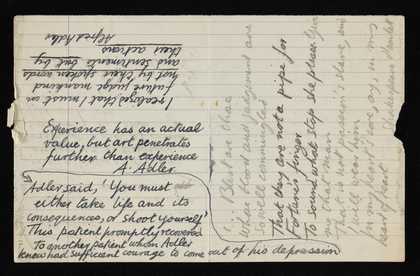 I realized that I must in
future judge mankind
not by their spoken words
and sentiments but by
their actions
Alfred Adler
Experience has an actual
value, but art penetrates
further than experience
A. Adler
Adler said, 'You must
either take life and its
consequences, or shoot yourself'
This patient promptly recovered
To another patient whom Adler
knew had sufficient courage to come out of his depression
'... Blest are those
Whose blood and judgement are
So well commingled
That they are not a pipe for
Fortune's finger
To sound what stop she please. Give
me that man
That is not passion's slave, and
I will wear him
In my heart's core, ay, in my
heart of heart
Shakespeare Hamlet